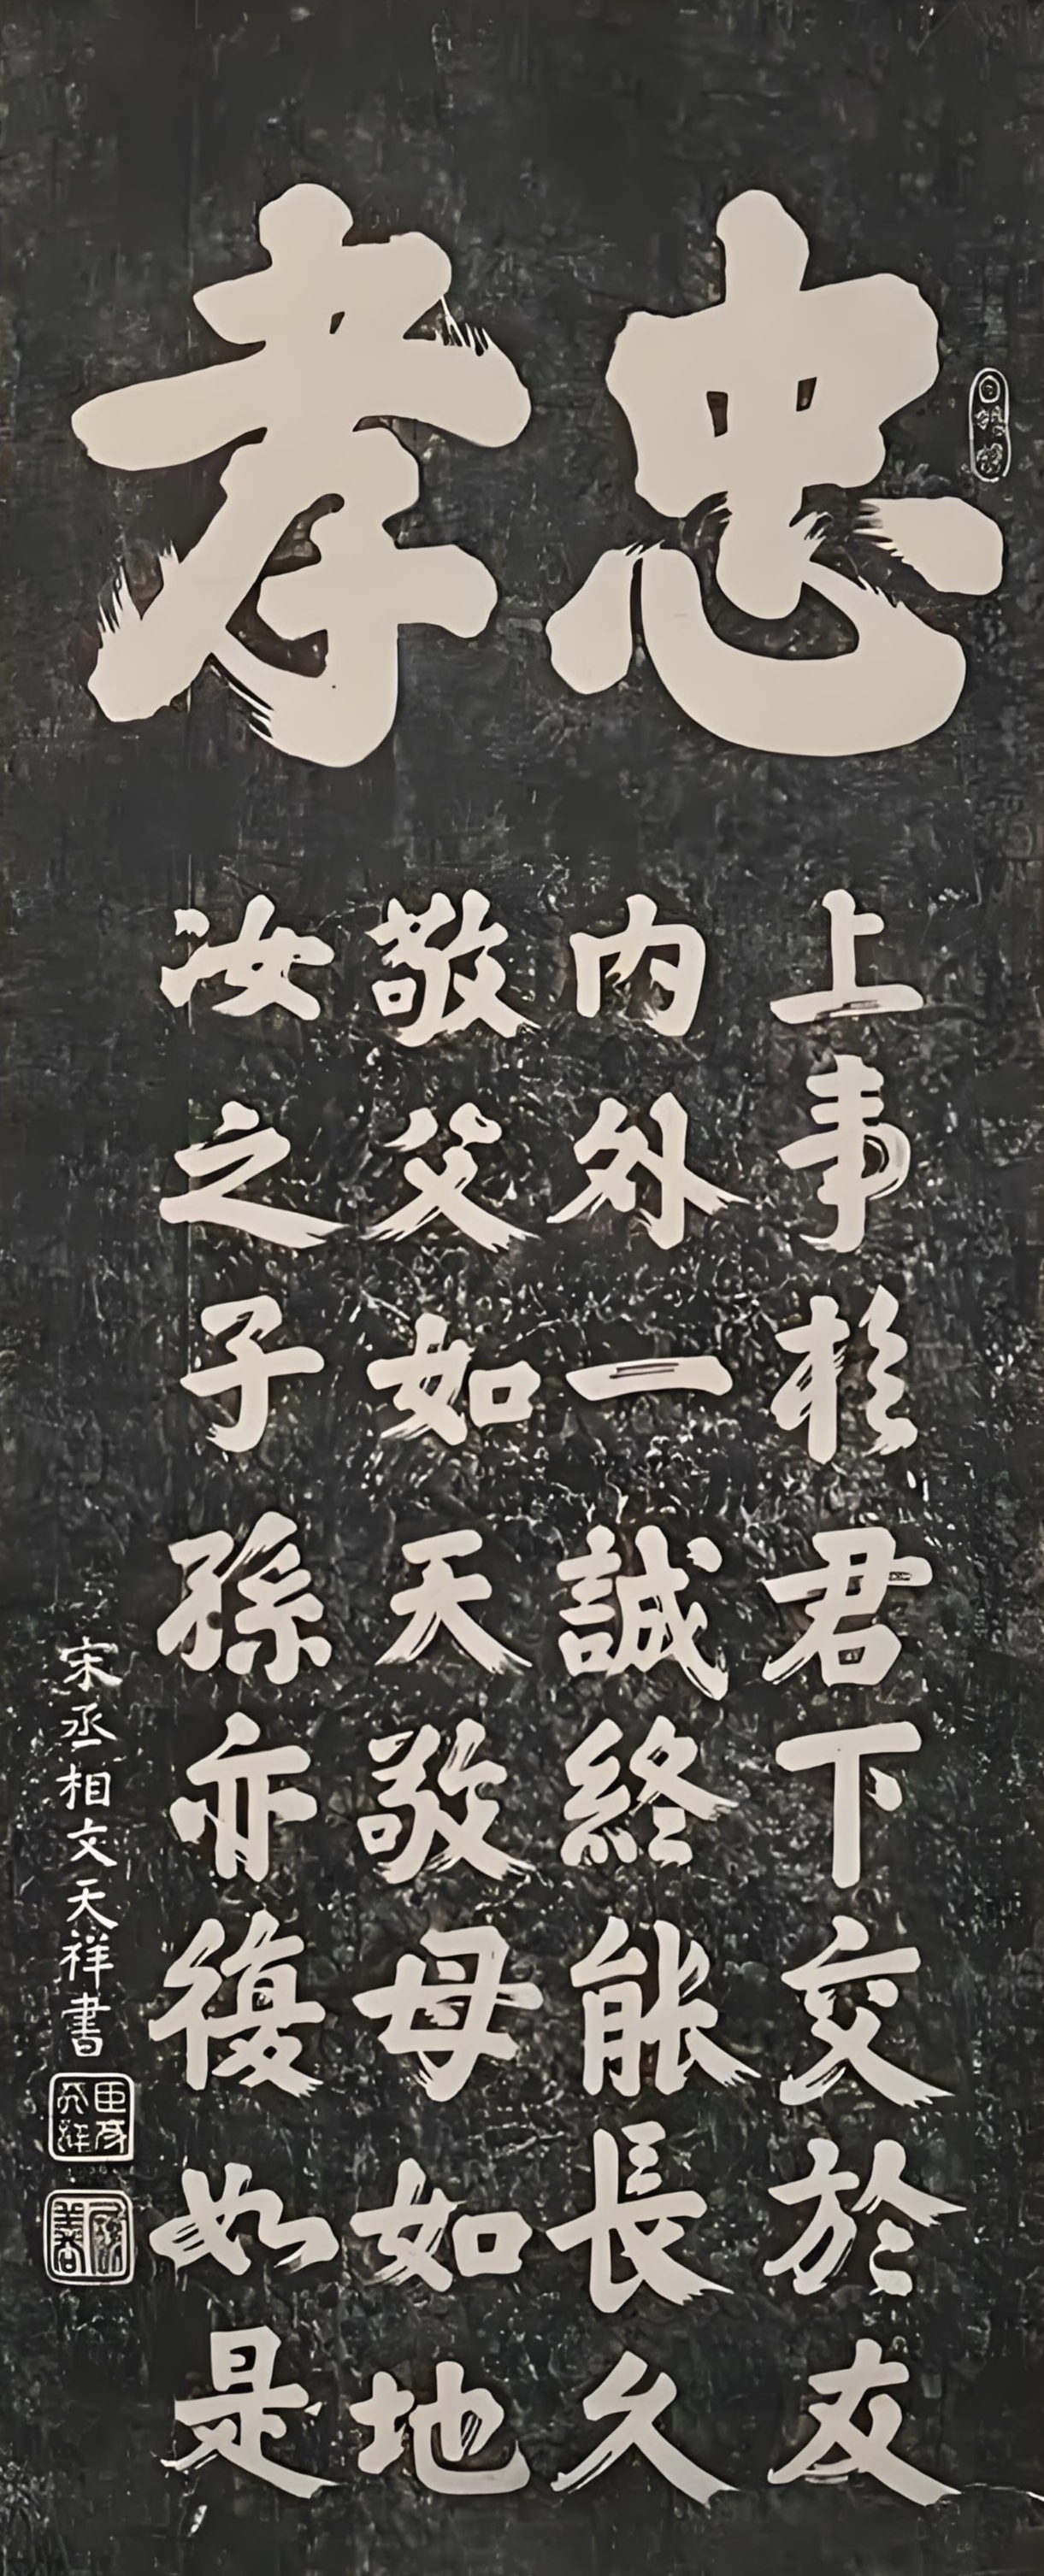 忠孝
上事於君下交於友
内外一誠終能長久
敬父如天敬母如地
汝之子孫亦復如是
宋丞相文天祥書